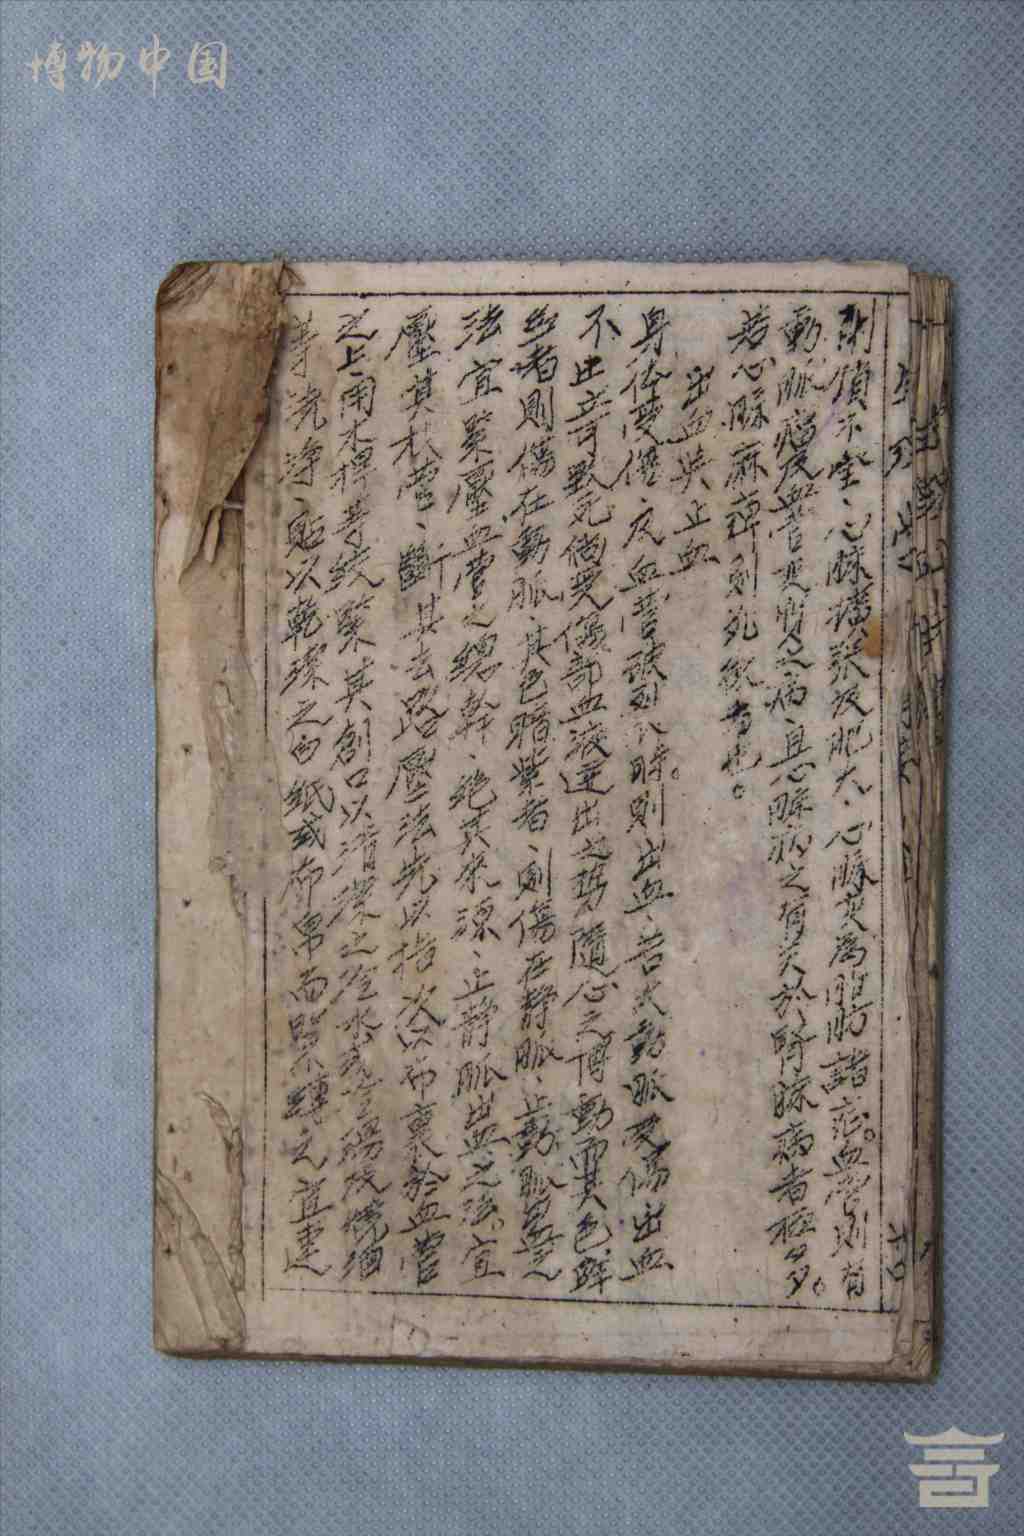 博物中国
閉鎖不全、心臟擴張及肥大、心臟変為脂肪諸症。血管則有
動脈瘤及血管変脂之病、且心臟病之有关於腎臟病者極多。
若心臟麻痺則死徵者也。
出血與止血
身体受傷、及血管破裂時。則出血、若大動脈受傷出血
不止立可致死倘見傷部血液逆出之勢隨心之博動而其色鮮
血者則傷在動脈、其色暗紫者、則傷在靜脈、止動脈出血之
法宜緊壓血管之幹、絕其來源、止靜脈出血之法。宜
壓其末管、斷其去路壓法先以指次以布裹於血管
之上用木桿等絞緊其創口以清潔之冷水或冷湯及燒酒
等洗淨、貼以乾潔之白紙或布帛而緊縛之宜速
生理学
十〇